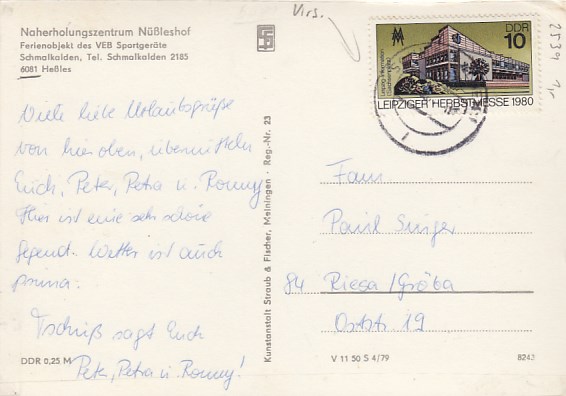 Naherholungszentrum Nüßleshof
Ferienobjekt des VEB Sportgeräte
Schmalkalden, Tel. Schmalkalden 2185
6081 Heßles
Viele liebe Urlaubsgrüße
von hier oben, übermitteln
Euch, Peter, Petra u. Ronny!
Hier ist eine sehr schöne
Gegend. Wetter ist auch
prima.
Tschüß sagt Euch
Peter, Petra u. Ronny!
DDR 0,25 M
Kunstanstalt Straub & Fischer, Meiningen · Reg.-Nr. 23
DDR
10
Leipzig-Information
LEIPZIGER HERBSTMESSE 1980
Fam
Paul Singer
84 Riesa/Gröba
Oststr 19
V 11 50 S 4/79
8243